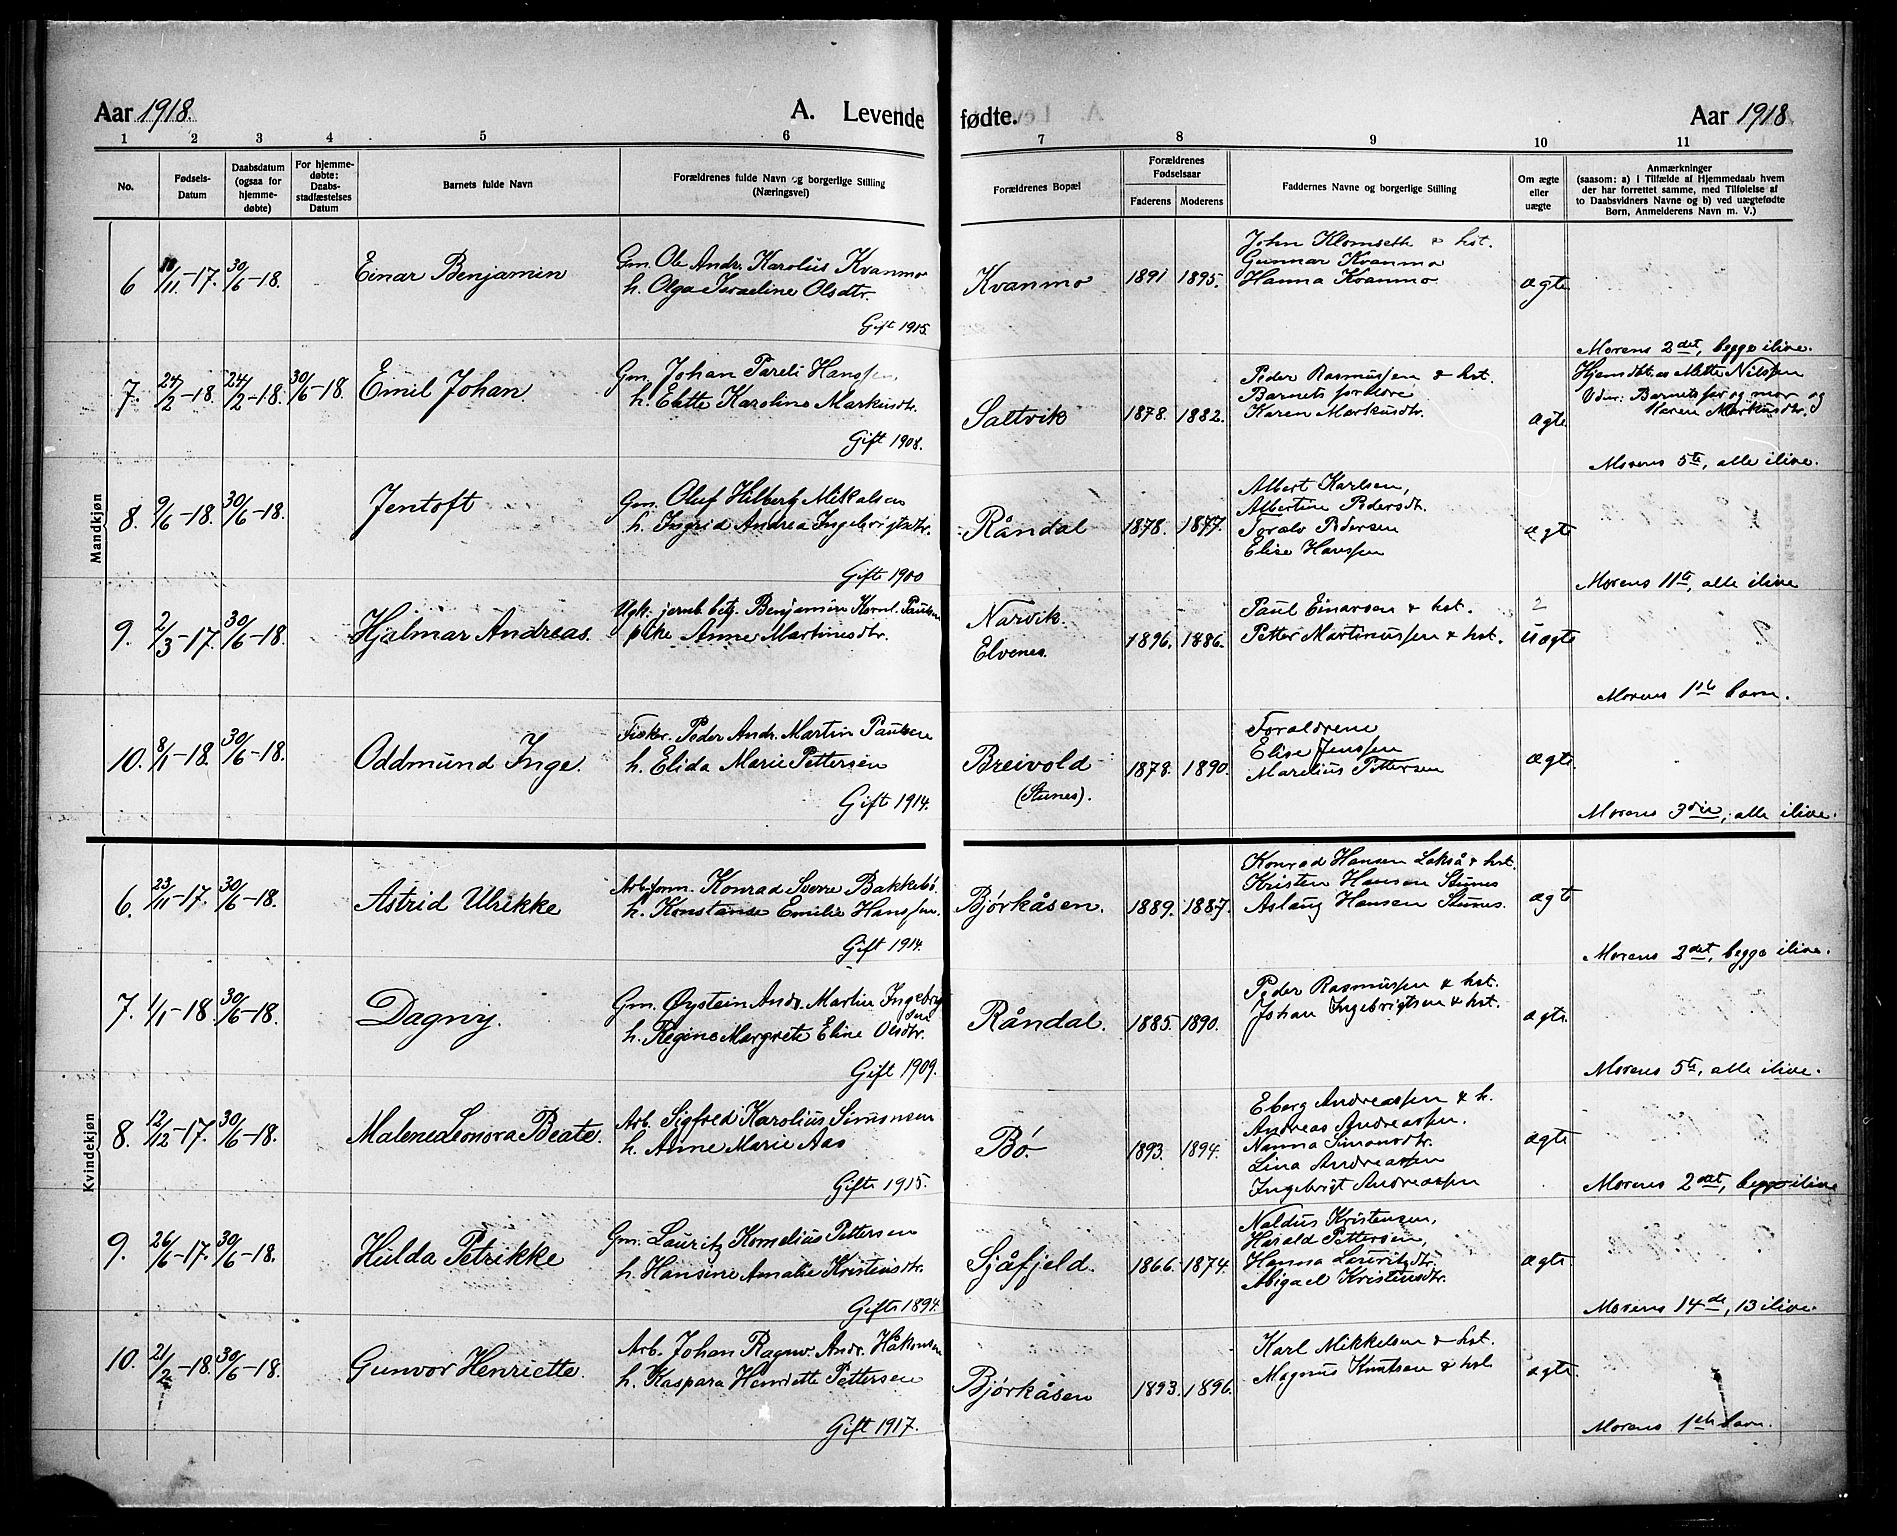 Aar 1918.
A. Levende fødte.
Aar 1918
1 2 3 4 5 6 7 8 9 10 11
No.
Fødsels-
Datum
Daabsdatum
(ogsaa for
hjemme-
døbte)
For hjemme-
døbte:
Daabs-
stadfæstelses
Datum
Barnets fulde Navn
Forældrenes fulde Navn og borgerlige Stilling
(Næringsvei)
Forældrenes Bopæl
Forældrenes
Fødselsaar
Faderens Moderens
Faddernes Navne og borgerlige Stilling
Om ægte
eller
uægte
Anmærkninger
(saasom: a) i Tilfælde af Hjemmedaab hvem
der har forrettet samme, med Tilføielse af
to Daabsvidners Navne og b) ved uægtefødte
Børn, Anmelderens Navn m. V.)
Mandkjøn
6 10/11-17. 30/6-18. Einar Benjamin
Gm. Ole Andr. Karolus Kvanmo
h. Olga Israeline Olsdtr.
Gift 1915.
Kvanmo 1891 1895.
John Klomseth & hst.
Gunnar Kvanmo
Hanna Kvanmo
ægte
Morens 2det, begge ilive.
7. 24/2-18. 24/2-18. 30/6-18. Emil Johan
Gm. Johan Pareli Hanssen.
h. Elette Karoline Markusdtr.
Gift 1908.
Saltvik 1878. 1882.
Peder Rasmussen & hst.
Barnets forældre
Karen Markusdtr.
ægte
Hjemdbt. as Mette Nilssen
Vidner: Barnets far og mor og
Karen Markusdtr.
Morens 5te, alle ilive.
8. 9/6-18. 30/6-18. Jentoft
Gm. Oluf Hilberg Mikalsen
h. Ingrid Andrea Ingebrigtsdtr.
Gift 1900
Råndal 1878. 1877.
Albert Karlsen,
Albertine Pedersdtr.
Toralv Pedersen
Elise Hanssen
ægte
Morens 11te, alle ilive
9. 2/3-17. 30/6-18. Hjalmar Andreas.
Ugk. jernb. betj. Benjamin Kornl. Paulsen
pike Anne Martinesdtr.
Narvik.
Elvenes. 1896. 1886.
Paul Einarsen & hst.
Petter Martinussen & hst.
2
uægte
Morens 1ste barn.
10. 8/1-18. 30/6-18. Oddmund Inge.
Fisker. Peder Andr. Martin Paulsen
h. Elida Marie Pettersen
Gift 1914.
Breivold
(Stunes). 1878. 1890.
Forældrene
Elise Jenssen
Marelius Pettersen
ægte
Morens 3die, alle ilive.
Kvindekjøn
6. 23/11-17. 30/6-18. Astrid Ulrikke
Arb.form. Konrad Sverre Bakkebø.
h. Konstanse Emilie Hanssen.
Gift 1914.
Bjørkåsen. 1889. 1887.
Konrad Hansen Lakså & hst.
Kristen Hansen Stunes
Aslaug Hansen Stunes.
ægte
Morens 2det, begge ilive.
7. 1/1-18. 30/6-18. Dagny.
Gm. Øystein Andr. Martin Ingebrigtsen
h. Regine Margrete Eline Olsdtr.
Gift 1909.
Råndal. 1885. 1890.
Peder Rasmussen & hst.
Johan Ingebrigtsen & hst.
ægte
Morens 5te, alle ilive.
8. 12/12-17. 30/6-18. Malene Leonora Beate.
Arb. Sigfred Karolius Simonsen
h. Anne Marie Aas
Gifte 1915.
Bø. 1893. 1894.
Eberg Andreassen & h.
Andreas Andreassen.
Nanna Simonsdtr.
Lina Andreassen
Ingebrigt Andreassen
ægte
Morens 2det, begge ilive
9. 26/6-17. 30/6-18. Hulda Petrikke
Gm. Lauritz Kornelius Pettersen
h. Hansine Amalie Kristinsdtr.
Gifte 1894.
Sjåfjeld. 1866. 1874.
Naldus Kristensen,
Harald Pettersen,
Hanna Lauritzdtr.
Abigael Kristinsdtr.
ægte
Morens 14de, 13 ilive.
10. 21/2-18. 30/6-18. Gunvor Henriette.
Arb. Johan Ragnv. Andr. Håkonsen
h. Kaspara Henriette Pettersen
Gift 1917.
Bjørkåsen 1893. 1896.
Karl Mikkelsen & hst.
Magnus Knutsen & hst.
ægte
Morens 1ste barn.